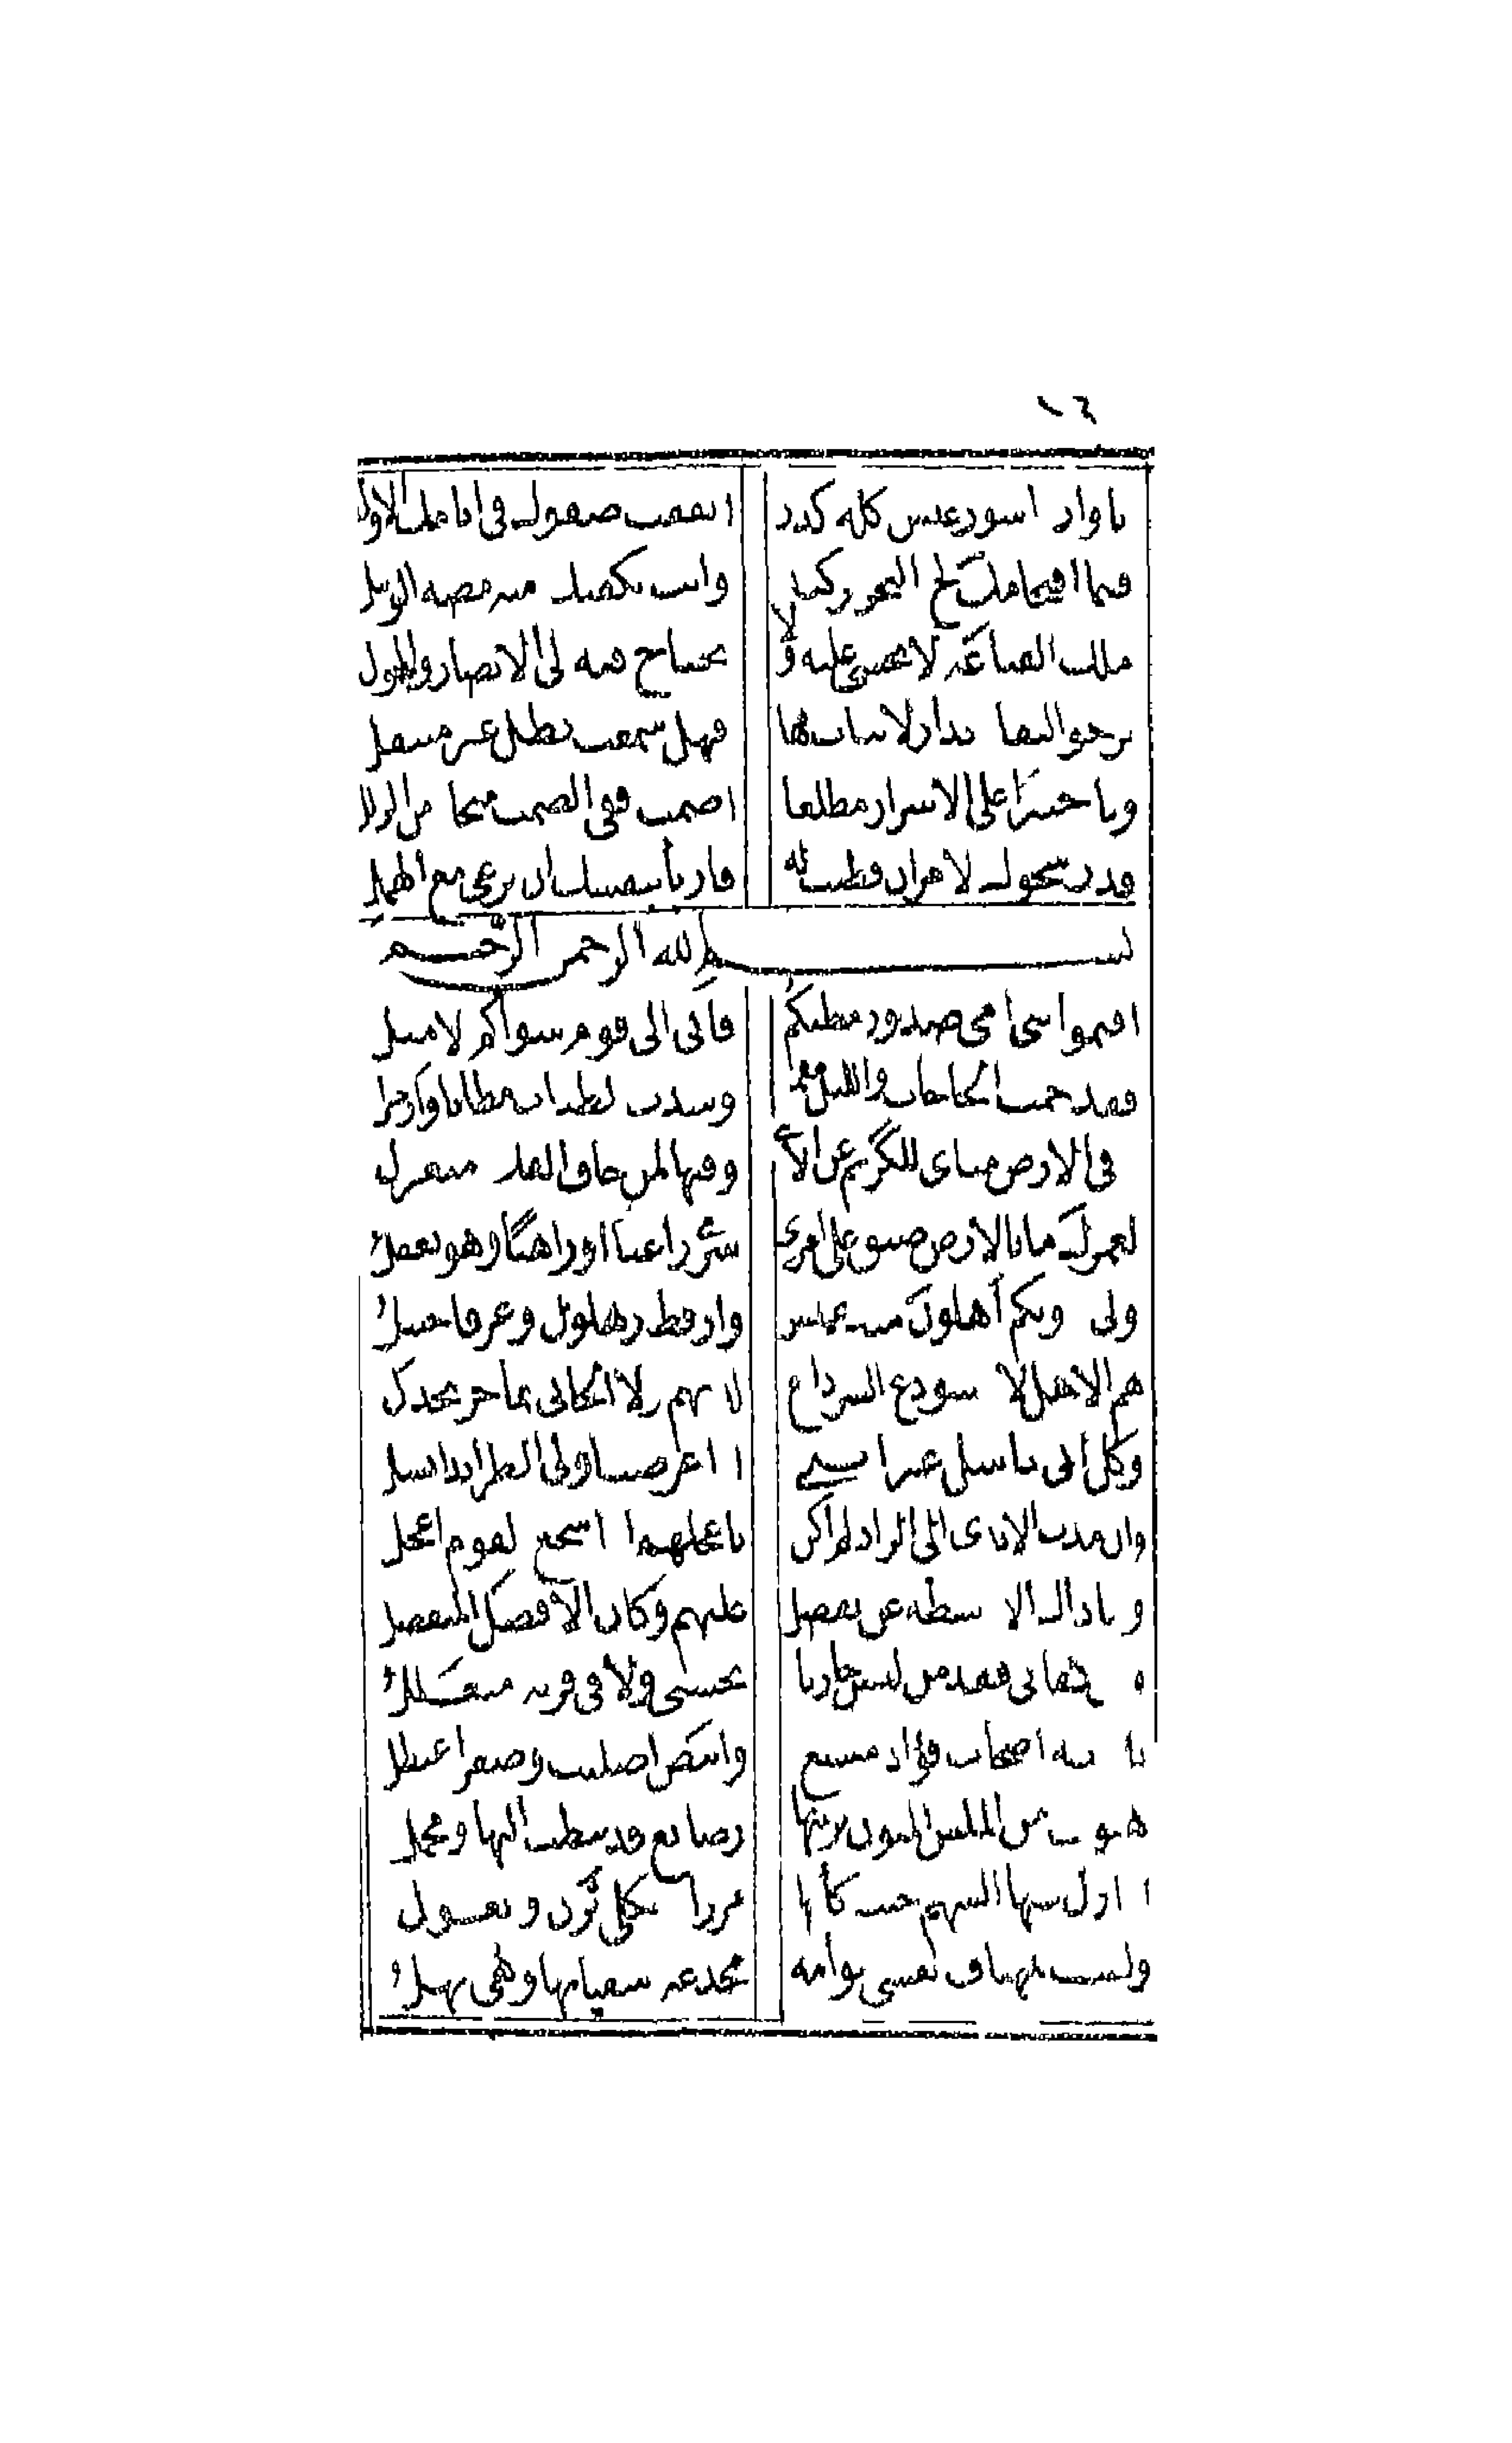 يا وارد اسور عيش كله كدر انفقت صفوك في ايامك الاول
فيما اقتحامك لج البحر تركبه وانت تكفيك منه مصة الوشل
ملك القناعة لا يخشى عليه ولا يحتاج فيه الى الانصار والخول
ترجو البقا بدار لا ثبات لها فهل سمعت بظل غير منتقل
ويا خبيرا على الاسرار مطلعا اصمت ففي الصمت منجا من الزلل
قد رشحوك لامر ان فطنت له فاربأ بنفسك ان ترعى مع الهمل
بسم الله الرحمن الرحيم
اقيموا بني امي صدور مطيكم فاني الى قوم سواكم لاميل
فقد حمت الحاجات والليل مقمر وشدت لطيات مطايا وارحل
في الارض مناى للكريم عن الاذى وفيها لمن خاف القلا متعزل
لعمرك ما بالارض ضيق على امرئ سرى راغبا او راهبا وهو يعقل
ولي دونكم أهلون سيد عملس وارقط زهلول وعرفا جيئل
هم الاهل لا مستودع السر ذائع لديهم ولا الجاني بما جر يخذل
وكل ابي باسل غير انني اذا عرضت اولى الطرائد ابسل
وان مدت الايدي الى الزاد لم اكن باعجلهم اذا اجشع القوم اعجل
وما ذاك الا بسطة عن تفضل عليهم وكان الافضل المتفضل
واني كفاني فقد من ليس جازيا بحسنى ولا في قربه متعلل
ثلاثة اصحاب فؤاد مشيع وابيض اصليت وصفرا عيطل
هتوف من الملس المتون يزينها رصائع قد نيطت اليها ومحمل
اذا زل عنها السهم حنت كانها مرزاة ثكلى ترن وتعول
ولست بمهياف يعشي سوامه مجدعة سقبانها وهي بهل